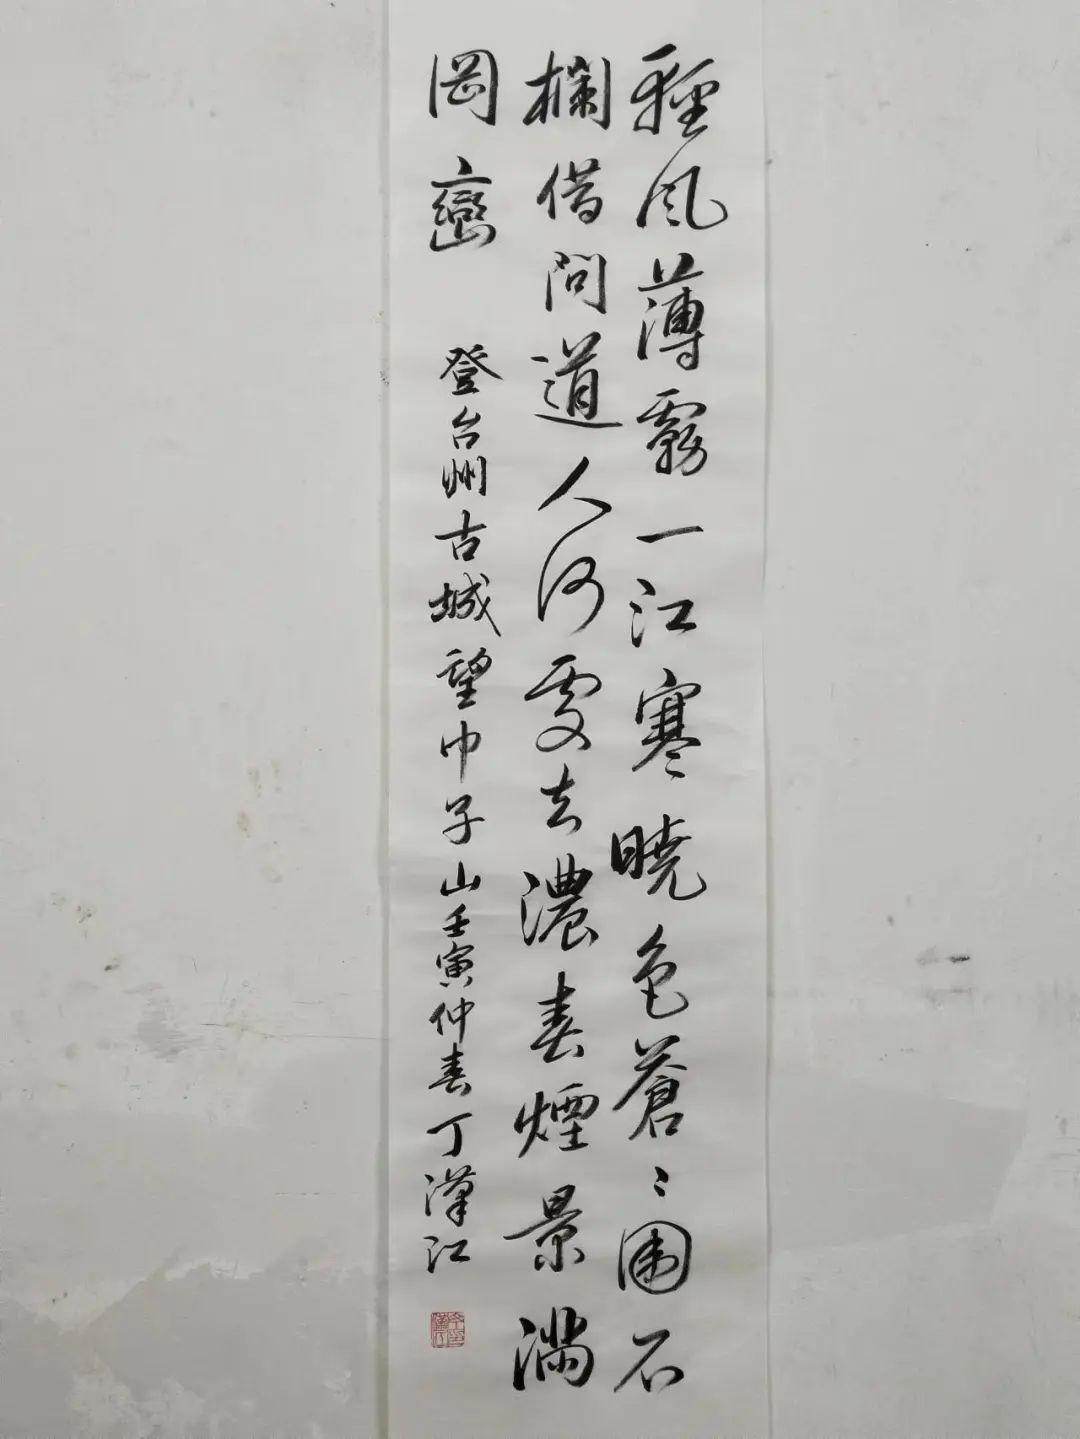 輕風薄霧一江寒曉色蒼〻圍石
欄借問道人何處去濃春煙景滿
岡巒
登台州古城望巾子山壬寅仲春丁漢江